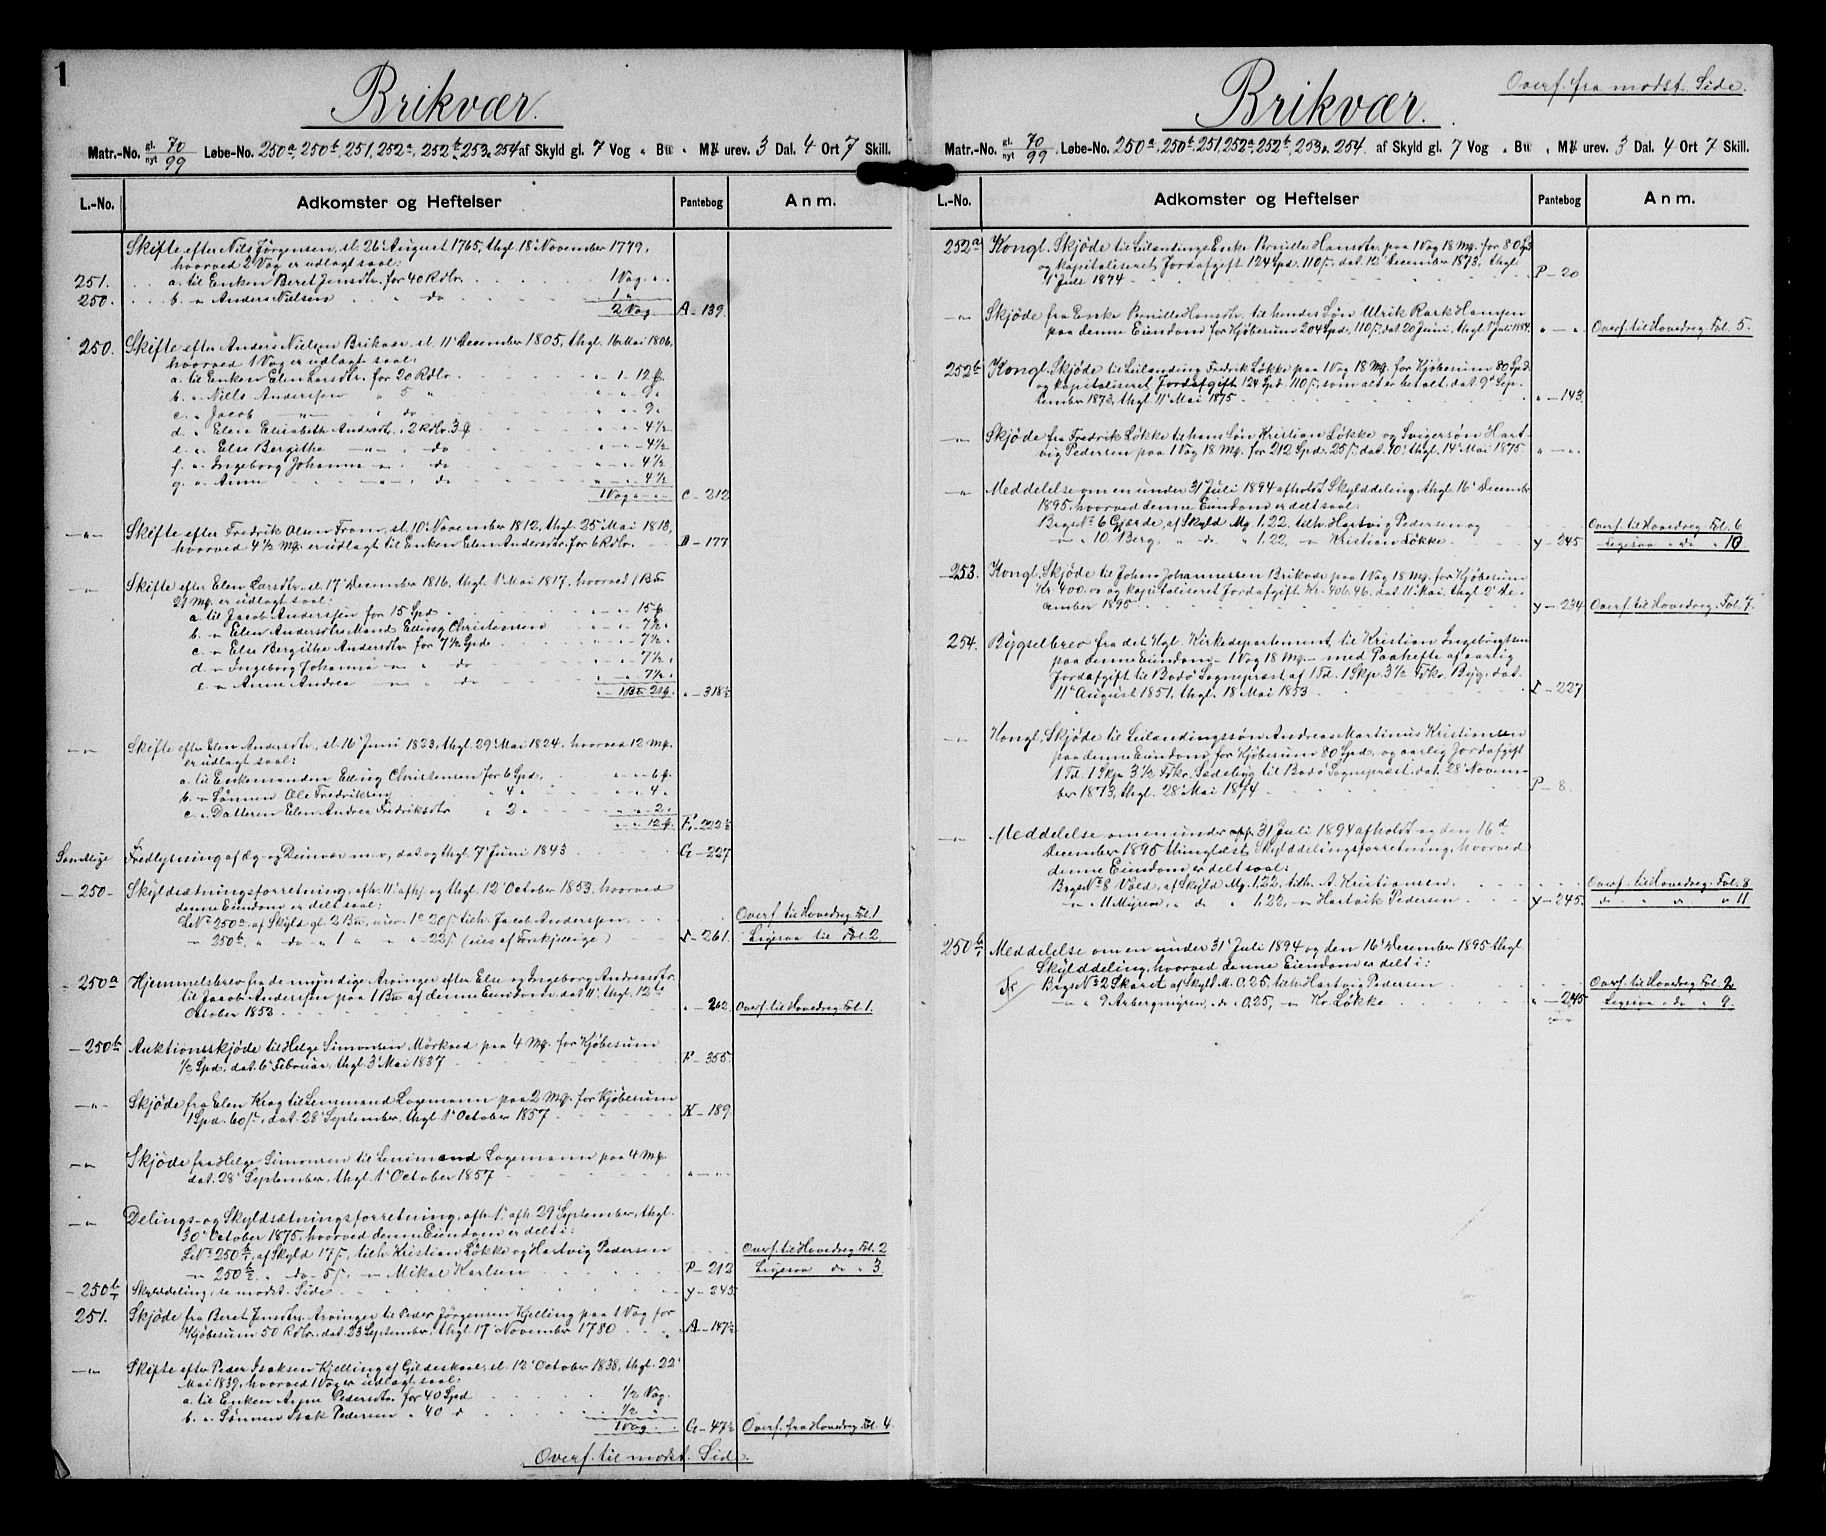 1
Brikvær.
Matr.-No. gl. 70 nyt 99 Løbe-No. 250a, 250b, 251, 252a, 252b, 253, 254 af Skyld gl. 7 Vog „ Bu „ M℔ urev. 3 Dal. 4 Ort 7 Skill.
L.-No. Adkomster og Heftelser Pantebog Anm.
Skifte efter Nils Jørgensen, sl. 26' August 1765, thgl. 18' November 1779,
hvorved 2 Vog er udlagt saal:
251. a. til Enken Beret Jensdtr. for 40 Rdlr. 1 Vog „ „
250. b. „ Anders Nielsen „ do 1 „
2 Vog A - 139.
250. Skifte efter Anders Nielsen Brikvær, sl. 11' December 1805, thgl. 16' Mai 1806,
hvorved 1 Vog er udlagt saal:
a. til Enken Elen Larsdtr. for 20 Rdlr. „ 1. 12 ℔.
b. „ Niels Andersen „ 5 „ „ „ 9 „
c. „ Jacob „ do „ „ 9 „
d. „ Elen Elisabeth Andersdtr. „ 2 Rdlr. 3 ₰ „ „ 4½
e. „ Else Bergithe „ do „ „ 4½
f. „ Ingeborg Johanna „ do „ „ 4½
g. „ Anne „ do „ „ 4½
1 Vog „ „ C - 212
„ Skifte efter Fredrik Olsen From, sl. 10' November 1812, thgl. 25' Mai 1813,
hvorved 4½ Mg. er udlagt til Enken Elen Andersdtr. for 6 Rdlr. D - 177
„ Skifte efter Elen Larsdtr. sl. 17' December 1816, thgl. 1' Mai 1817, hvorved 1 Bu
21 Mg. er udlagt saal:
a. til Jacob Andersen for 15 Spd „ „ 15 ℔.
b. „ Elen Andersdtrs Mand Elling Christensen „ „ 7½ „
c. „ Else Bergithe Andersdtr for 7½ Spd „ „ 7½ „
d. „ Ingeborg Johanna „ „ do „ „ 7½ „
e. „ Anne Andrea „ „ do „ „ 7½ „
„ 1 Bu 21 ℔. „ - 318½
„ Skifte efter Elen Andersdtr., sl. 16' Juni 1823, thgl. 29' Mai 1824, hvorved 12 Mg.
er udlagt saal:
a. til Enkemanden Elling Christensen for 6 Spd. „ „ 6 ℔.
b. „ Sønnen Ole Fredriksen „ 4 „ „ „ 4 „
c. „ Datteren Elen Andrea Fredriksdtr „ 2 „ „ „ 2 „
„ „ 12 ℔. E - 222½
Samtlige Fredlysning af Æg- og Dunvær m.v., dat. og thgl. 7' Juni 1843 G - 227
250 - Skyldsætningsforretning, afh. 11' afhj. og thgl. 12' October 1853. hvorved
denne Eiendom er delt saal:
L№ 250a, af Skyld gl. 2 Bu, urev. 1„ 20/. tilh. Jacob Andersen
„ 250b, „ do „ 1 „ „ „ 22/ (eies af Forskjellige) I - 261. Overf. til Hovedreg. Fol. 1
Ligesaa til Fol. 2
- 250a Hjemmelsbrev fra de myndige Arvinger efter Else og Ingeborg Andersdtr.
til Jacob Andersen paa 1 Bu af denne Eiendom dat. 11', thgl. 12te
October 1853 „ - 262. Overf. til Hovedreg. Fol. 1.
- 250b Auktionsskjøde til Helge Simonsen Mørkved paa 4 Mg. for Kjøbesum
½ Spd., dat. 6' Februar, thgl. 3' Mai 1837 F - 355.
„ Skjøde fra Elen Krog til Lensmand Lagemann paa 2 Mg. for Kjøbesum
1 Spd. 60/., dat. 28' September, thgl. 1' October 1857 N - 189.
„ Skjøde fra Helge Simonsen til Lensmand Lagemann paa 4 Mg.
dat. 28' September, thgl. 1' October 1857 „ - „
„ Delings- og Skyldsætningsforretning, afh. 1', afh. 29' September, thgl.
30' October 1875, hvorved denne Eiendom er delt i:
L№ 250 b/1, af Skyld 17/., tilh. Kristian Løkke og Hartvig Pedersen
„ 250 b/2, „ do - 5/., „ Mikal Karlsen P - 212 Overf. til Hovedreg. Fol. 2
Ligesaa do „ 3.
- 250 b/1 Skylddeling, se modst. Side Y - 245.
251. Skjøde fra Beret Jensdtrs Arvinger til Peder Jørgensen Kjelling paa 1 Vog for
Kjøbesum 50 Rdlr. dat. 23 September, thgl. 17' November 1780 A - 147½
„ Skifte efter Peder Isaksen Kjelling af Gildeskaal, sl. 12' October 1838, thgl. 22'
Mai 1839, hvorved 1 Vog er udlagt saal:
a. til Enken Anne Pedersdtr for 40 Spd ½ Vog.
b. „ Sønnen Isak Pedersen „ 40 d ½ „
1 Vog „ „ G - 47½ Overf. fra Hovedreg. Fol. 4.
Overf. til modst. Side.
Brikvær.
Overf. fra modst. Side.
Matr.-No. gl. 70 nyt 99. Løbe-No. 250a, 250b, 251, 252a, 252b, 253, 254. af Skyld gl. 7 Vog „ Bu „ M℔ urev. 3 Dal. 4 Ort 7 Skill.
L.-No. Adkomster og Heftelser Pantebog Anm.
252a Kongl. Skjøde til Leilændings Enke Pernille Hansdtr. paa 1 Vog 18 Mg. for 80 Spd
og kapitaliseret Jordafgift 124 Spd. 110/., dat. 12' December 1873, thgl.
1' Juli 1874 P - 20
„ Skjøde fra Enke Pernille Hansdtr. til hendes Søn Ulrik Rark Hansen
paa denne Eiendom for Kjøbesum 204 Spd. 110/., dat 20' Juni, thgl. 1' Juli 1884. „ - „ Overf. til Hovedreg. Fol. 5.
252b Kongl. Skjøde til Leilænding Fredrik Løkke paa 1 Vog 18 Mg. for Kjøbesum 80 Spd.
og kapitaliseret Jordafgift 124 Spd. 110/., som alt er betalt, dat. 9d Sep-
tember 1873, thgl. 11' Mai 1875 „ - 143.
„ Skjøde fra Fredrik Løkke til hans Søn Kristian Løkke og Svigersøn Hart-
vig Pedersen paa 1 Vog 18 Mg. for 212 Spd. 25/., dat. 10', thgl. 14' Mai 1875. „ - „
„ Meddelelse om en under 31' Juli 1894 afholdt Skylddeling, thgl. 16' December
1895, hvorved denne Eiendom er delt saal:
Brgs № 6 Gjærde, af Skyld Mg 1,22, tilh. Hartvig Pedersen og
„ „ 10. Berg, „ do „ 1,22, „ Kristian Løkke. Y - 245 Overf. til Hovedreg. Fol. 6
Ligesaa „ do „ 10
253. Kongl. Skjøde til Johan Johannessen Brikvær paa 1 Vog 18 Mg. for Kjøbesum
Kr. 400.00 og kapitaliseret Jordafgift Kr. 406.46, dat. 11' Mai, thgl 2' De-
cember 1895 Y - 234 Overf. til Hovedreg. Fol. 7.
254. Bygselbrev fra det Kgl. Kirkedepartement til Kristian Ingebrigtsen
paa denne Eiendom - 1 Vog 18 Mg. - med Paahefte af aarlig
Jordafgift til Bodø Sognepræst af 1 Td. 1 Skp. 3½ Fdkr. Byg, dat.
11' August 1851, thgl. 18' Mai 1853 I - 227
„ Kongl. Skjøde til Leilændingssøn Andreas Martinus Kristiansen
paa denne Eiendom for Kjøbesum 80 Spd. og aarlig Jordafgift
1 Td. 1 Skp 3½ Fdkr. Sædebyg til Bodø Sognepræst, dat. 28' Novem-
ber 1873, thgl. 28' Mai 1874 P - 8.
„ Meddelelse om en under 31' Juli 1894 afholdt og den 16d
December 1895 thinglæst Skylddelingsforretning, hvorved
denne Eiendom er delt saal:
Brgs № 8 Vold, af Skyld Mg. 1.22, tilh. A. Kristiansen.
„ „ 11 Myren, „ do „ 1,22, „ Hartvik Pedersen Y - 245. Overf. til Hovedreg. Fol. 8
do „ „ „ 11
250 b/1 Meddelelse om en under 31' Juli 1894 og den 16' December 1895 thgl.
Skylddeling, hvorved denne Eiendom er delt i:
Brgs № 2 Skaret af Skyld M. 0,25 tilh. Hartvig Pedersen
„ „ 9 Arbergmyren, „ do „ 0,25, „ Kr. Løkke „ - 245 Overf. til Hovedreg. Fol. 2
Ligesaa „ do „ 9.